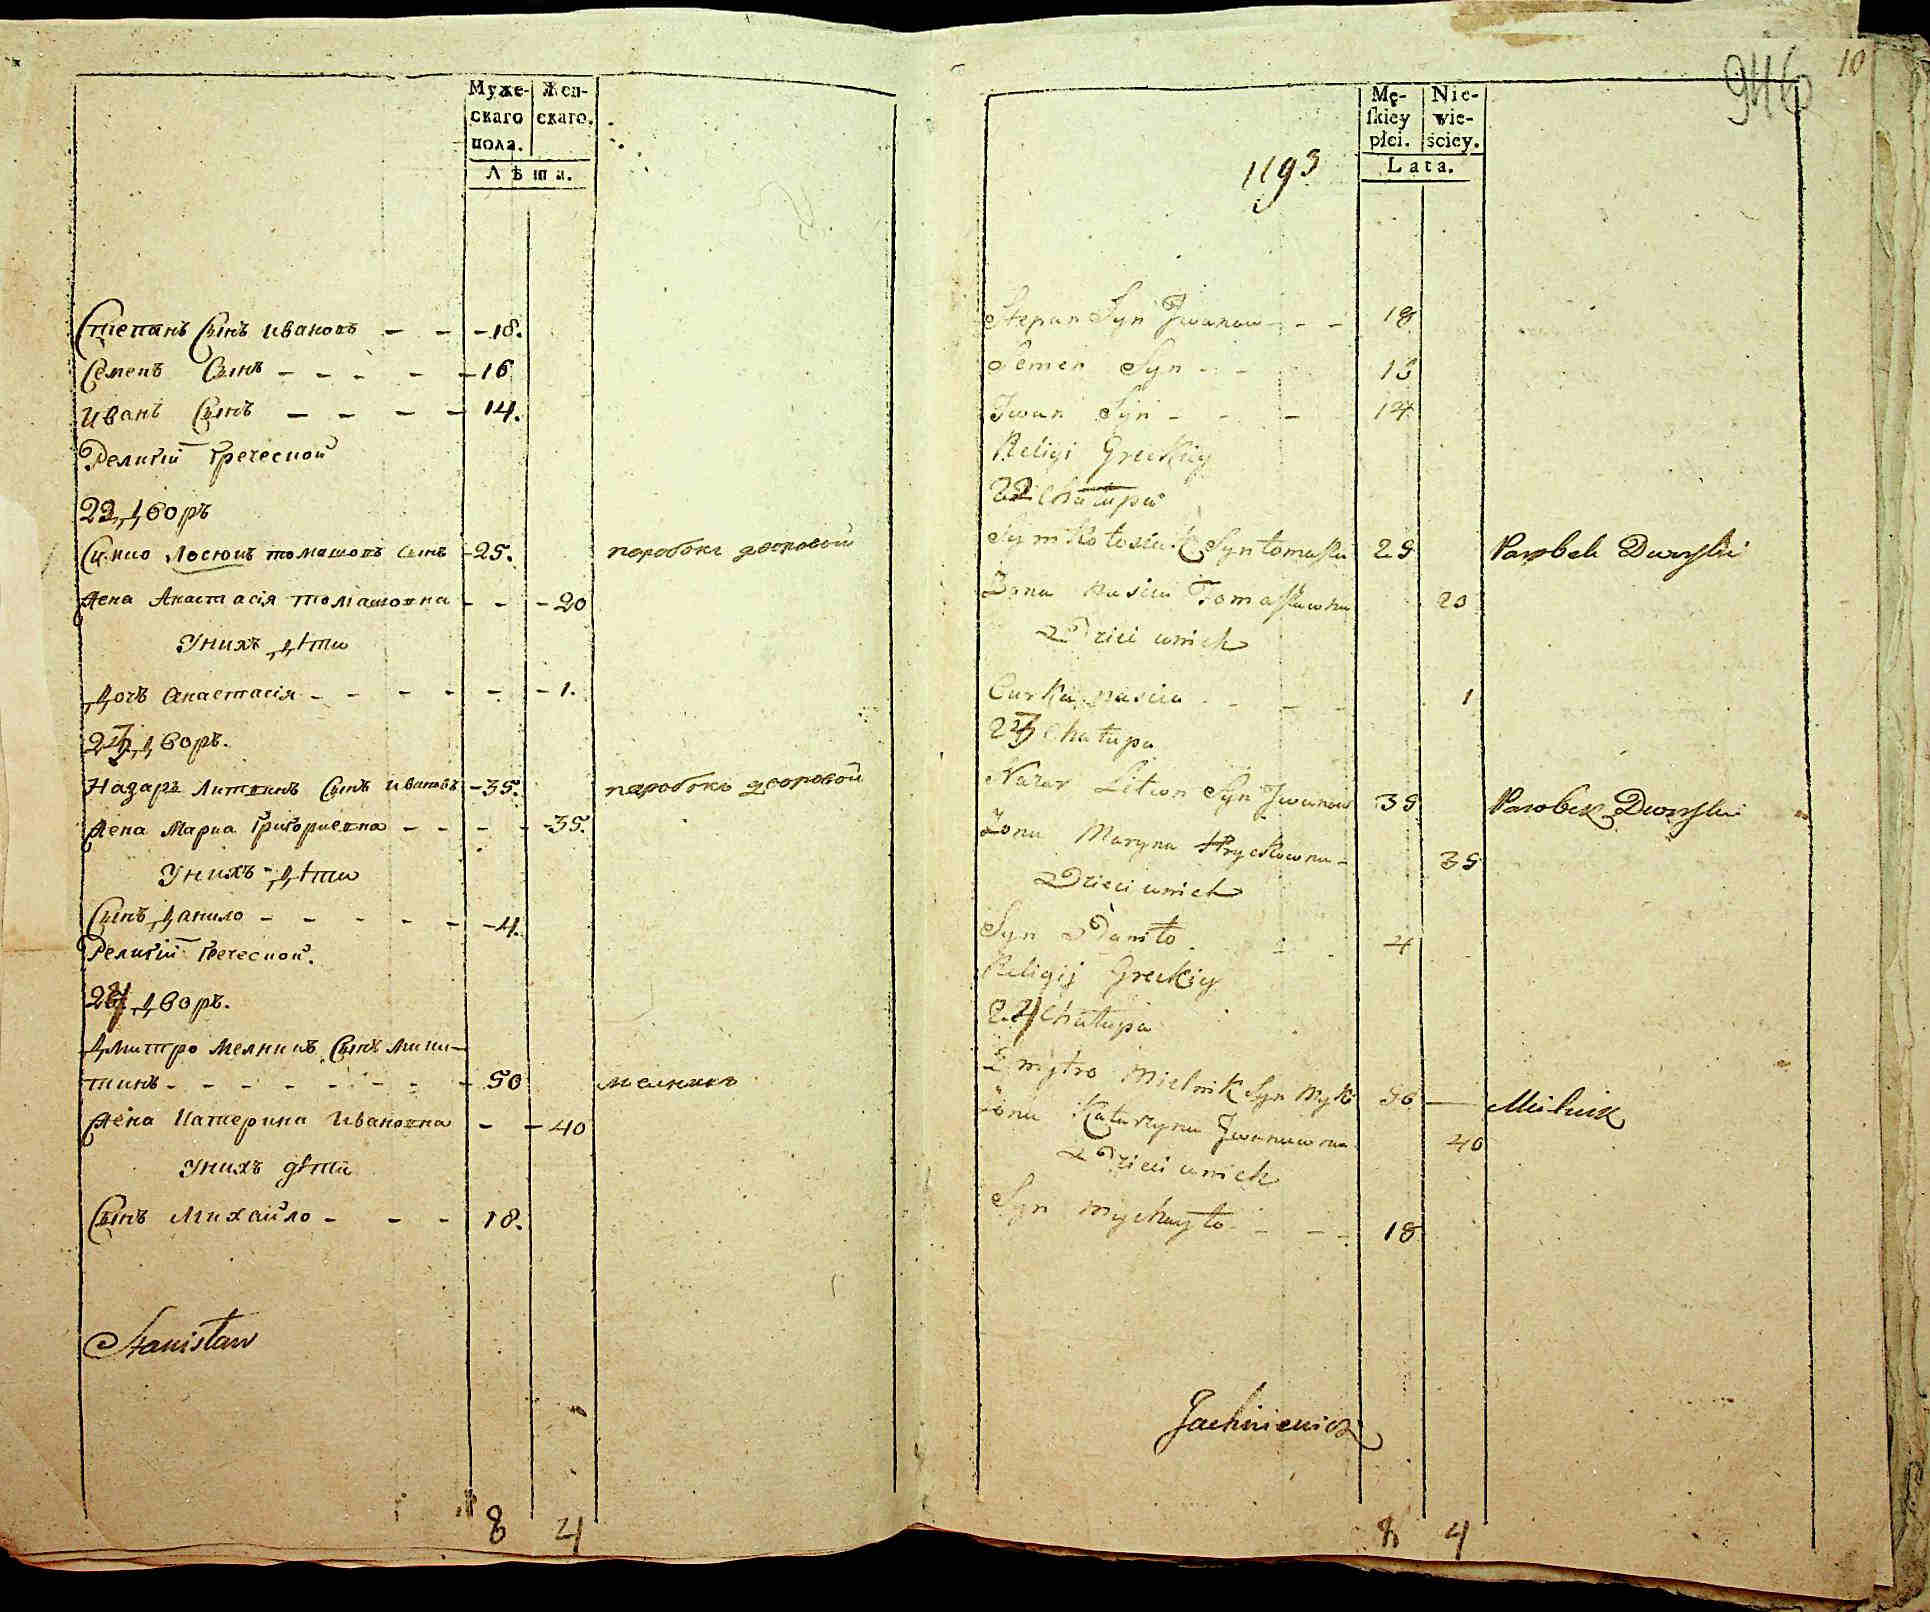 Муже- Жен-
скаго скаго.
пола.
Лѣта.
Степанъ Сынъ Ивановъ - - - 18.
Семенъ Сынъ - - - - - 16
Иванъ Сынъ - - - - 14.
Религіи Греческой
22 дворъ
Лосюкъ томашовъ Сынъ - 25. паробокъ дворовой
Жена Анастасія томашовна - - - 20
У нихъ дѣти
Дочь Анастасія - - - - - - 1.
23 дворъ.
Назаръ Литвинъ Сынъ Ивановъ - 35. паробокъ дворовой
Жена Мариа Григориевна - - - - 35.
У нихъ дѣти
Сынъ Данило - - - - - - 4.
Религіи Греческой.
24 дворъ.
Дмитро Мелникъ Сынъ Мики-
тинъ - - - - - - - - 50 мелникъ
Жена Катерина Ивановна - - 40
У нихъ дѣти
Сынъ Михайло - - - 18.
Stanisław
8 4
946 10
Mę- Nie-
skiey wie-
płci. ściey.
Lata.
1193
Stepan Syn Iwanow - - - 18
Semen Syn - - 16
Iwan Syn - - - 14
Religi Greckiey
22 Chałupa
Syn Tomaszu 25 Parobek Dworski
Żona Nascia Tomaszowna 20
Dzieci u nich
Curka nascia - - - - 1
23 Chałupa
Nazar Litwin Syn Iwanow 35 Parobek Dworski
Żona Maryna Hryckowna - 35
Dzieci u nich
Syn Daniło - - - 4
Religij Greckiy
24 Chałupa
Dmytro Mielnik Syn Myki 50 — Mielnik
Żona Katarzyna Iwanowna 40
Dzieci u nich
Syn Mychayło - - - 18
Jachniewicz
8 4